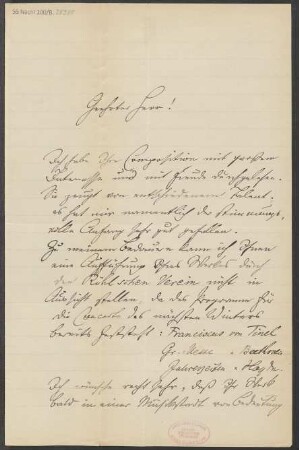 Geehrter Herr!
Ich habe Ihre Composition mit großem
Interesse und mit Freude durchgesehen.
Sie zeugt von entschiedenem Talent,
es hat mir namentlich der stimmungs-
volle Anfang sehr gut gefallen.
Zu meinem Bedauern kann ich Ihnen
eine Aufführung Ihres Werkes durch
den Rühl'schen Verein nicht in
Aussicht stellen, da das Programm für
die Concerte des nächsten Winters
bereits feststeht: Franciscus von Tinel
Gr. Messe " Beethoven
Jahreszeiten " Haydn
Ich wünsche recht sehr, daß Ihr
bald in einer Musikstadt von Bedeutung